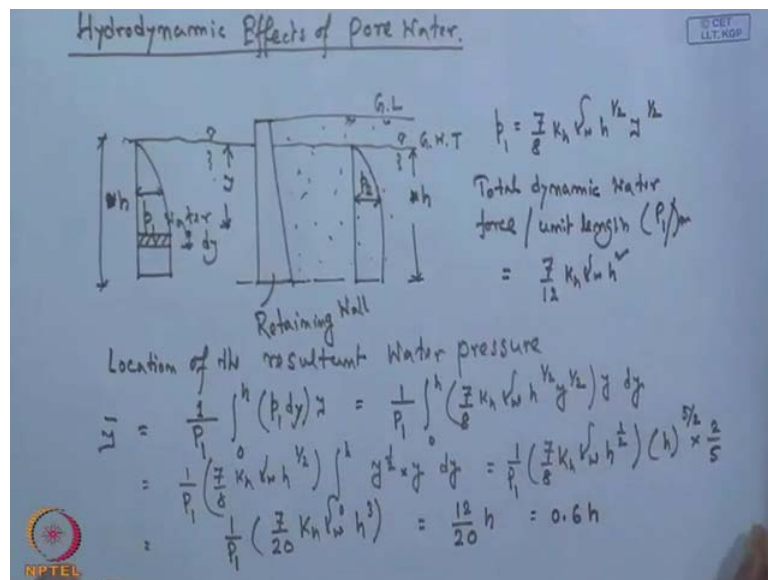 Hydrodynamic Effects of Pore Water.
© CET
I.I.T. KGP
G.L
G.W.T
h
y
p₁
water
dy
p₂
h
Retaining Wall
p₁ = 7/8 kₕ γw h^1/2 y^1/2
Total dynamic water
force / unit length (P₁)
= 7/12 kₕ γw h²
Location of the resultant water pressure
ȳ = 1/P₁ ∫₀^h (p₁ dy) y = 1/P₁ ∫₀^h (7/8 kₕ γw h^1/2 y^1/2) y dy
= 1/P₁ (7/8 kₕ γw h^1/2) ∫₀^h y^1/2 × y dy = 1/P₁ (7/8 kₕ γw h^1/2) (h)^5/2 × 2/5
= 1/P₁ (7/20 kₕ γw h³) = 12/20 h = 0.6 h
NPTEL